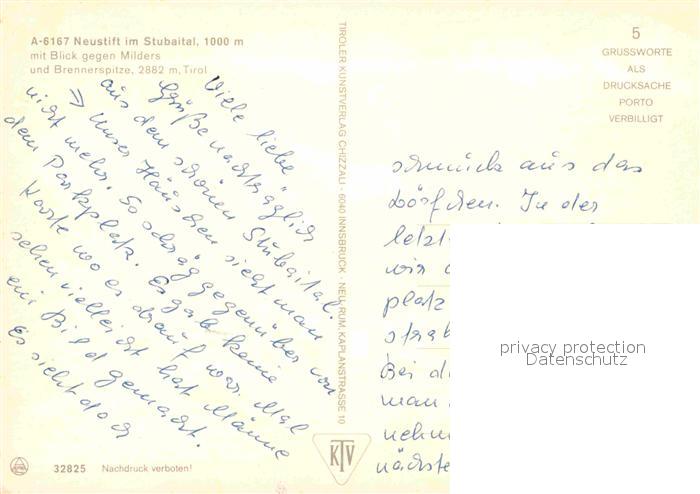 A-6167 Neustift im Stubaital, 1000 m
mit Blick gegen Milders
und Brennerspitze, 2882 m, Tirol
Viele liebe
Grüße nachträglich
aus dem schönen Stubaital.
Unser Häuschen sieht man
nicht mehr. So schräg gegenüber von
dem Parkplatz. Es gab keine
Karte wo es drauf war. Mal
sehen vielleicht hat Männe
ein Bild gemacht.
Es sieht doch
TIROLER KUNSTVERLAG CHIZZALI · 6040 INNSBRUCK · NEU-RUM, KAPLANSTRASSE 10
5
GRUSSWORTE
ALS
DRUCKSACHE
PORTO
VERBILLIGT
schmuck aus das
Dörfchen. In der
letzt
wir
platz
stra
Bei di
man
nehm
nächste
privacy protection
Datenschutz
KTV
32825 Nachdruck verboten!